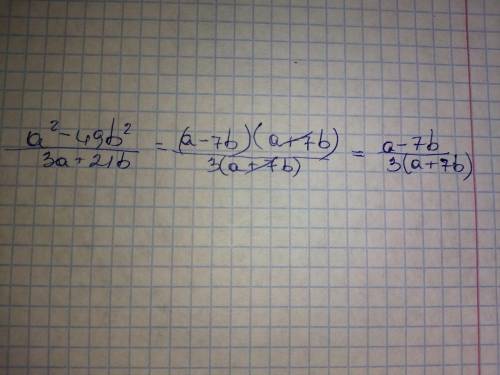 (a² - 49b²)/(3a + 21b) = (a - 7b)(a + 7b)/3(a + 7b) = (a - 7b)/3(a + 7b)